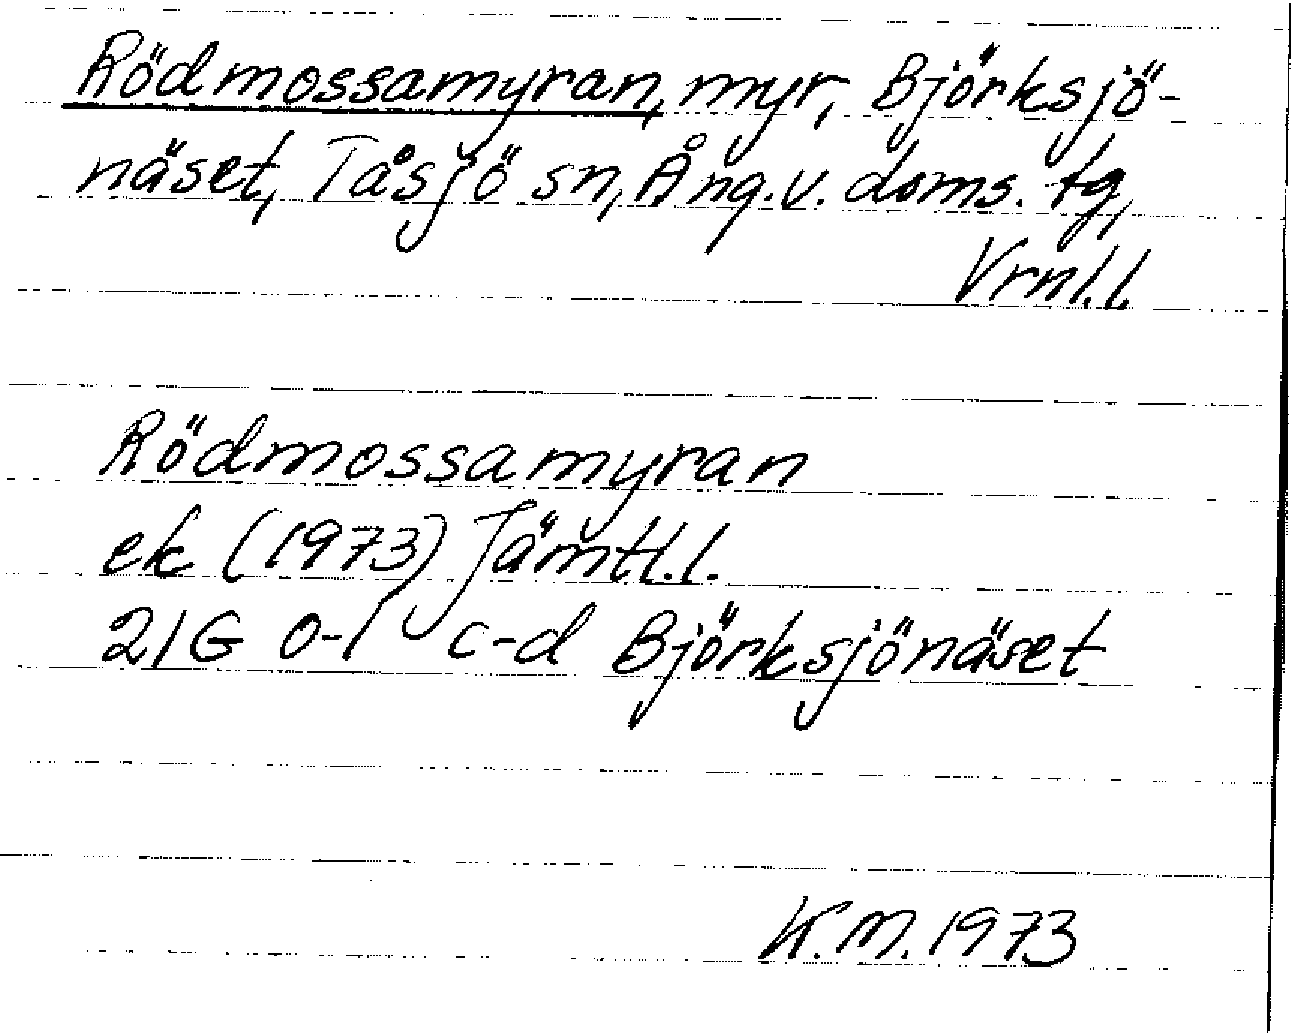 Rödmossamyran, myr, Björksjö-
näset, Tåsjö sn, Ång. v. doms. tg,
Vrnl.l.
Rödmossamyran
ek (1973) Jämtl.l.
21G 0-1 c-d Björksjönäset
K.M. 1973